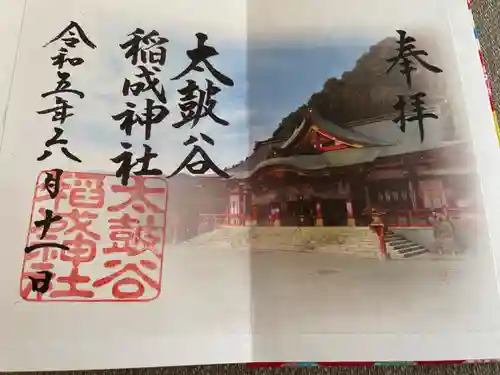 奉拝
太皷谷
稲成神社
令和五年六月十一日
太皷谷
稲成神社